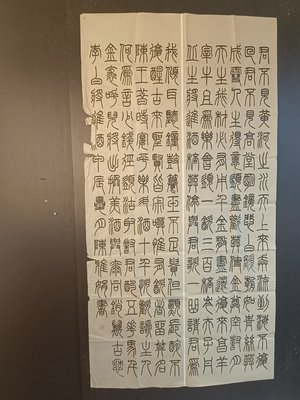 君不見黃河之水天上來奔流到海不復
回君不見高堂明鏡悲白髮朝如青絲暮
成雪人生得意須盡歡莫使金樽空對月
天生我材必有用千金散盡還復來烹羊
宰牛且為樂會須一飲三百杯岑夫子丹
丘生將進酒杯莫停與君歌一曲請君為
我傾耳聽鐘鼓饌玉不足貴但願長醉不
願醒古來聖賢皆寂寞惟有飲者留其名
陳王昔時宴平樂斗酒十千恣歡謔主人
何為言少錢徑須沽取對君酌五花馬千
金裘呼兒將出換美酒與爾同銷萬古愁
李白將進酒辰夏陳雅書